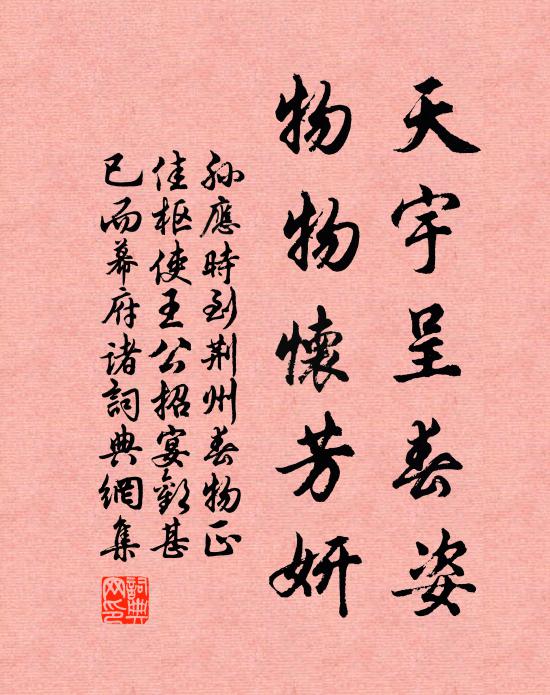 天宇呈春姿
物物懷芳妍
孫應時到荆州春物正
佳枢使王公招宴歡甚
已而幕府諸詞典網集
詞典網印